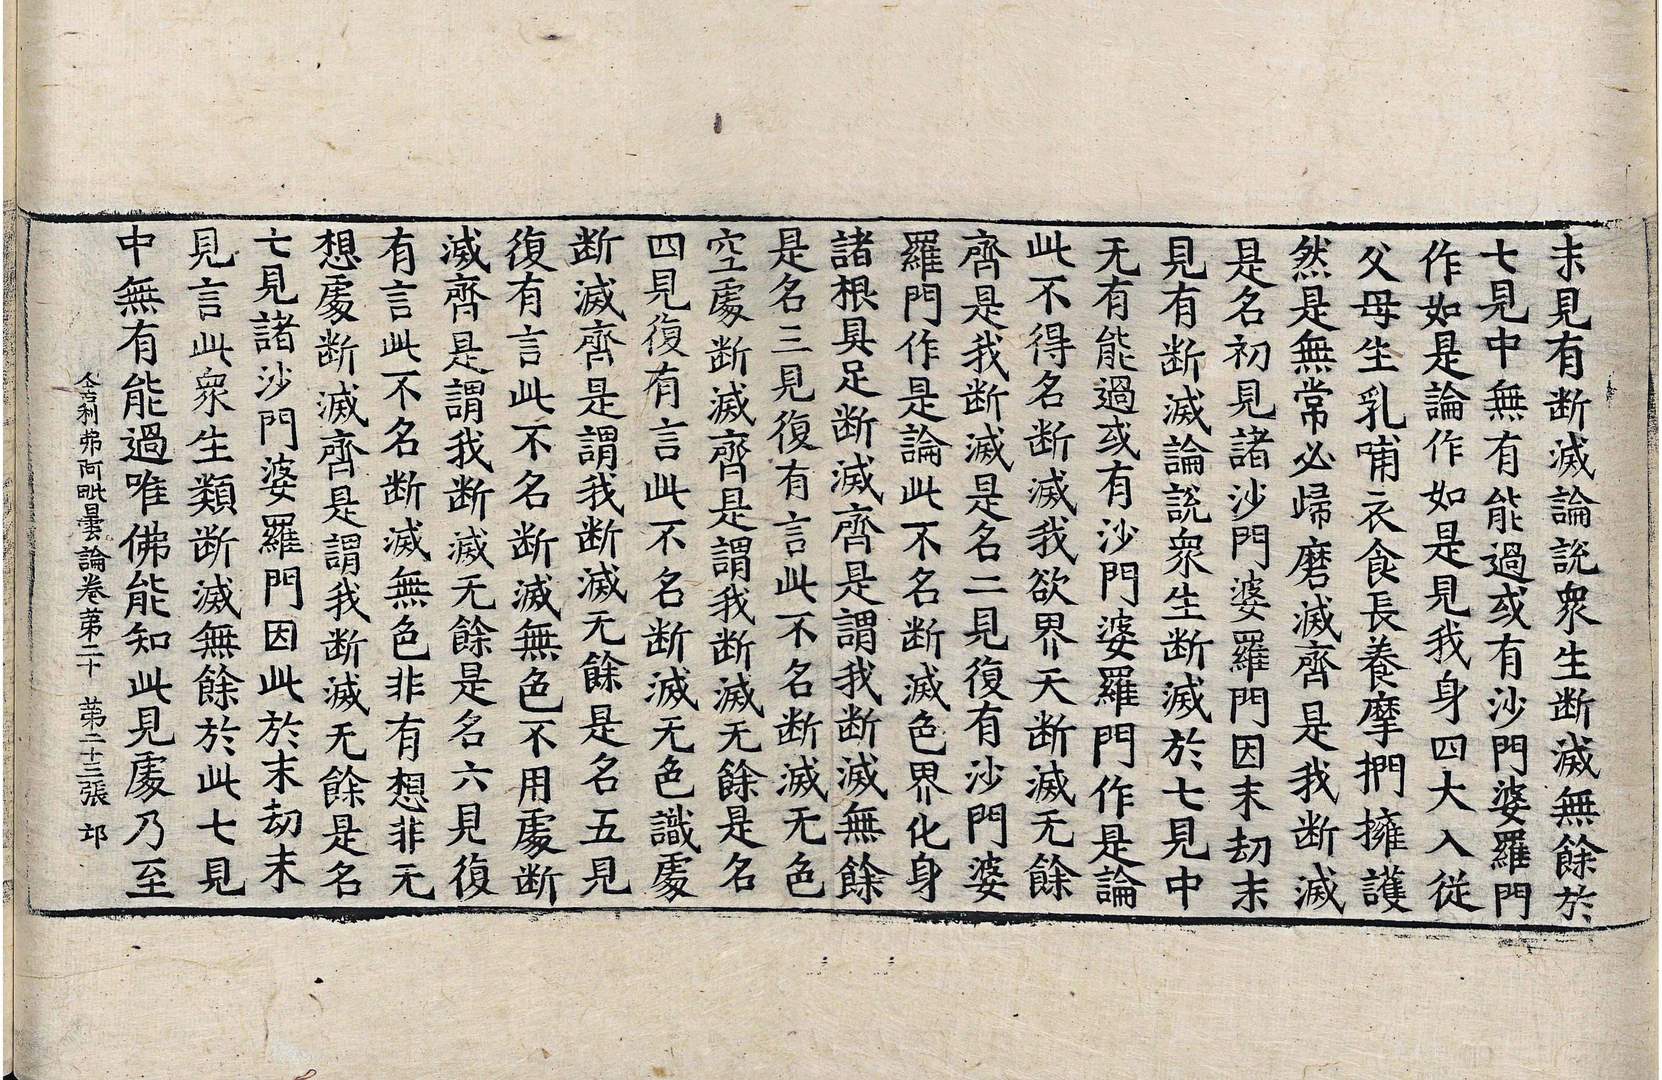 末見有断滅論說衆生断滅無餘於
七見中無有能過或有沙門婆羅門
作如是論作如是見我身四大入従
父母生乳哺衣食長養摩捫擁護
然是無常必歸磨滅齊是我断滅
是名初見諸沙門婆羅門因末劫末
見有断滅論說衆生断滅於七見中
无有能過或有沙門婆羅門作是論
此不得名断滅我欲界天断滅无餘
齊是我断滅是名二見復有沙門婆
羅門作是論此不名断滅色界化身
諸根具足断滅齊是謂我断滅無餘
是名三見復有言此不名断滅无色
空處断滅齊是謂我断滅无餘是名
四見復有言此不名断滅无色識處
断滅齊是謂我断滅无餘是名五見
復有言此不名断滅無色不用處断
滅齊是謂我断滅无餘是名六見復
有言此不名断滅無色非有想非无
想處断滅齊是謂我断滅无餘是名
七見諸沙門婆羅門因此於末劫末
見言此衆生類断滅無餘於此七見
中無有能過唯佛能知此見處乃至
舍利弗阿毗曇論卷第二十 第二十三張 卭